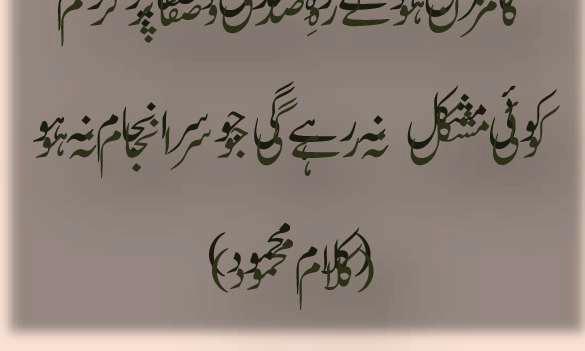 گامزن ہو گے رہِ صدق و صفا پر گر تم
کوئی مشکل نہ رہے گی جو سر انجام نہ ہو
(کلام محمود)